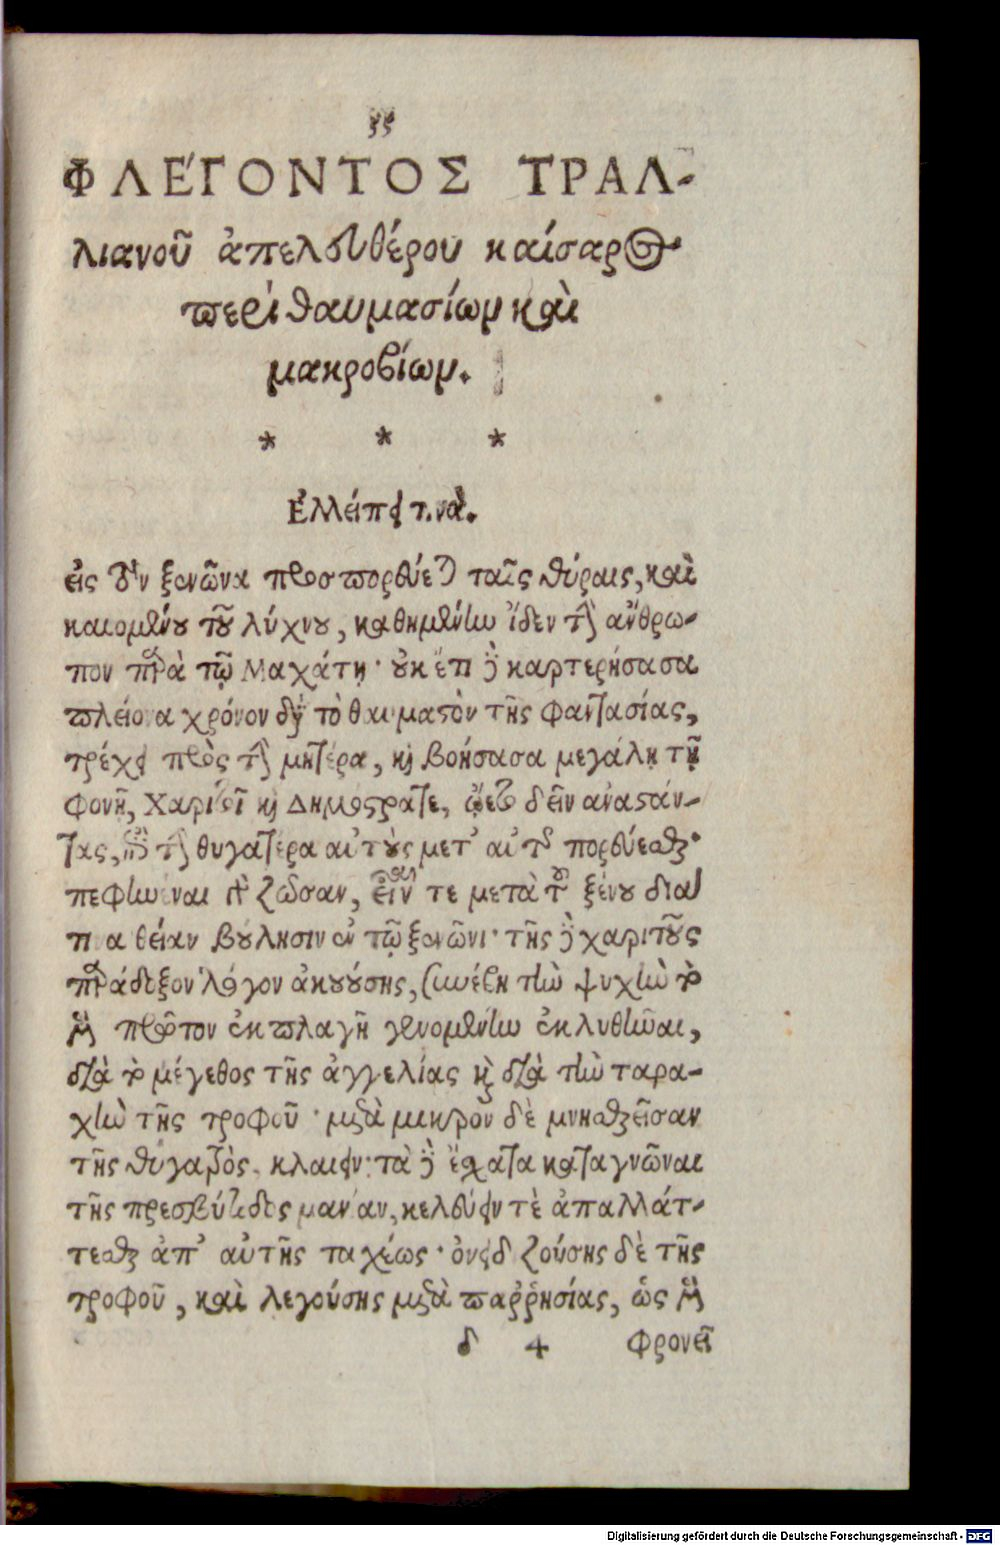 55
ΦΛΕΓΟΝΤΟΣ ΤΡΑΛ-
λιανοῦ ἀπελευθέρου καίσαρος
περὶ θαυμασίων καὶ
μακροβίων.
* * *
Ἐλλείπει τινὰ.
εἰς τὸν ξενῶνα προσπορεύεται ταῖς θύραις, καὶ
καιομένου τοῦ λύχνου, καθημένην ἴδεν τὴν ἄνθρω-
πον παρὰ τῷ Μαχάτῃ· οὐκ ἔτι δὲ καρτερήσασα
πλείονα χρόνον διὰ τὸ θαυμαστὸν τῆς φαντασίας,
τρέχει πρὸς τὴν μητέρα, καὶ βοήσασα μεγάλῃ τῇ
φονῇ, Χαριτοῖ καὶ Δημόστρατε, ᾤετο δεῖν ἀναστάν-
τας, ἐπὶ τὴν θυγατέρα αὐτοὺς μετ' αὐτῆς πορεύεσθαι·
πεφηνέναι γὰρ ζῶσαν, εἶναί τε μετὰ τοῦ ξένου διά
τινα θείαν βούλησιν ἐν τῷ ξενῶνι· τῆς δὲ χαριτοῦς
παράδοξον λόγον ἀκούσης, συνέβη τὴν ψυχὴν τὸ
μὲν πρῶτον ἐκπλαγῆ γενομένην ἐκλυθῆναι,
διὰ τὸ μέγεθος τῆς ἀγγελίας καὶ διὰ τὴν ταρα-
χὴν τῆς τροφοῦ· μετὰ μικρὸν δὲ μνησθεῖσαν
τῆς θυγατρὸς κλαίειν· τὰ δὲ ἔσχατα καταγνῶναι
τῆς πρεσβύτιδος μανίαν, κελεύειν τὲ ἀπαλλάτ-
τεσθαι ἀπ' αὐτῆς ταχέως· ὀνειδιζούσης δὲ τῆς
τροφοῦ, καὶ λεγούσης μετὰ παῤῥησίας, ὡς μὲν
δ 4 φρονεῖ
Digitalisierung gefördert durch die Deutsche Forschungsgemeinschaft - DFG